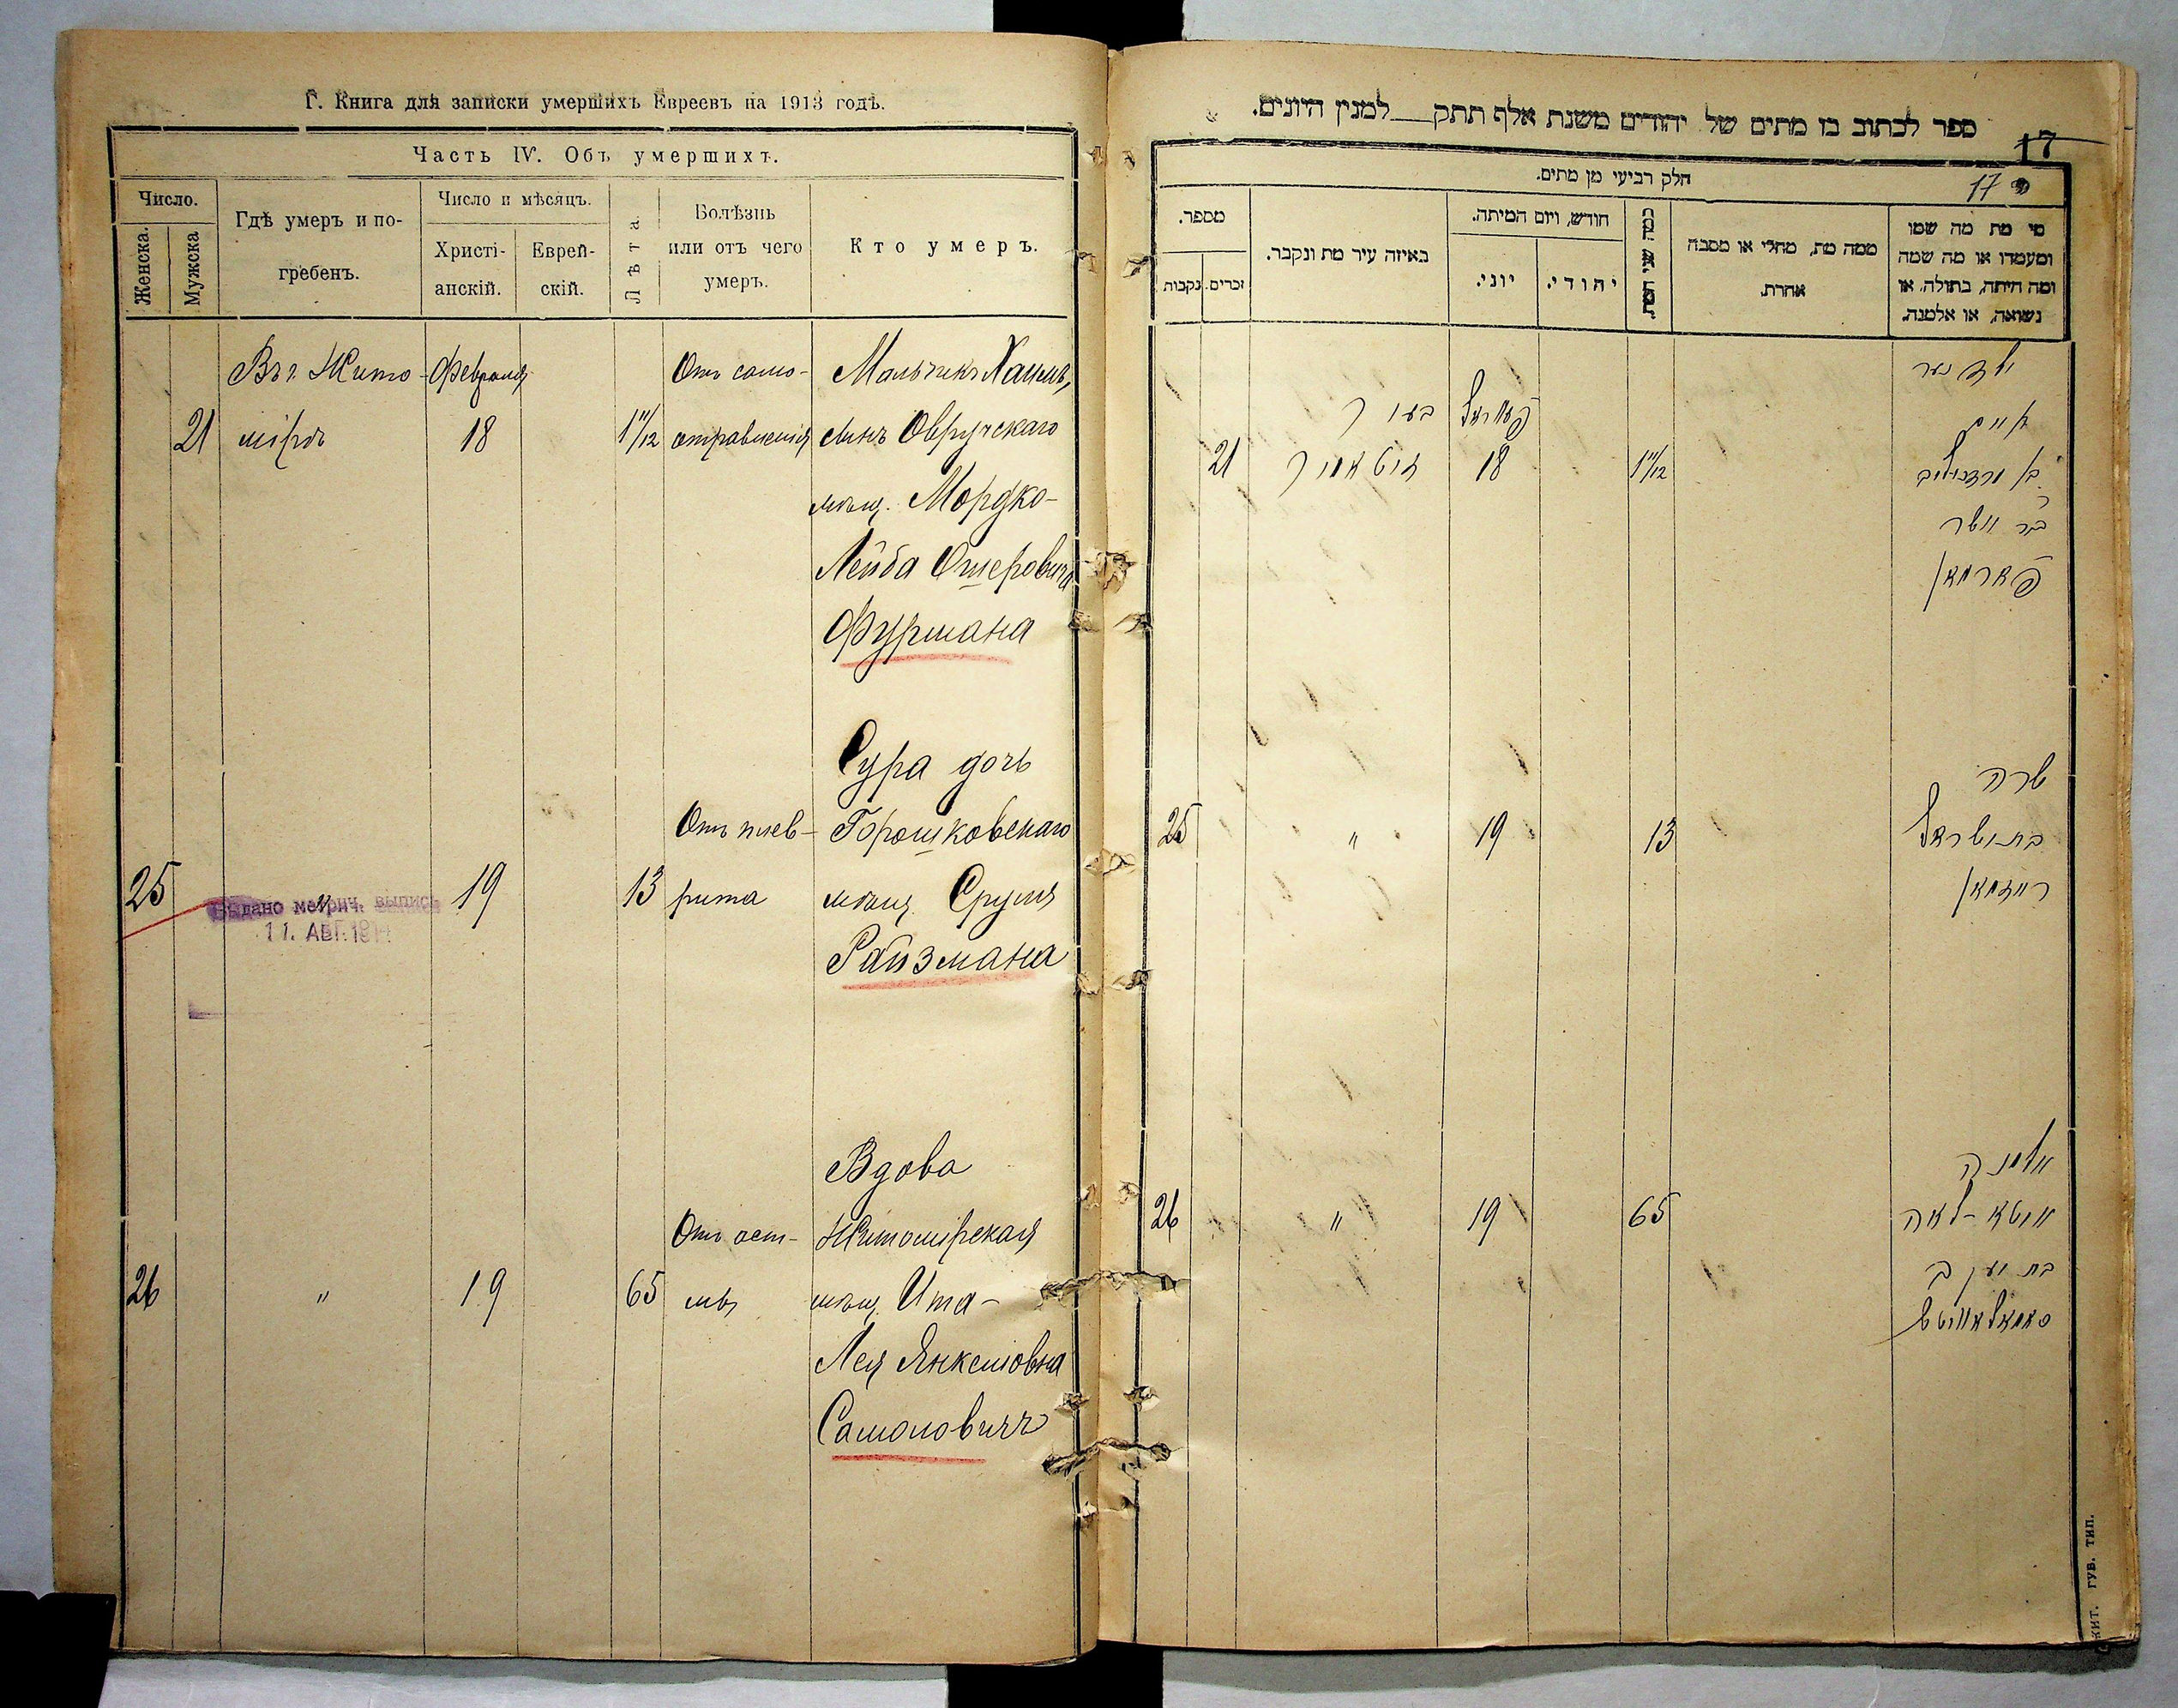 Г. Книга для записки умершихъ Евреевъ на 1913 годъ.
Часть IV. Объ умершихъ.
Число.
Женска.
Мужска
Гдѣ умеръ и по-
гребенъ.
Число и мѣсяцъ.
Христі-
анскій.
Еврей-
скій.
Лѣта.
Болѣзнь
или отъ чего
умеръ.
Кто умеръ.
Въ г. Жито- Февраля Отъ само- Мальчикъ Хаимъ,
21 мірѣ 18 1 11/12 отравленія сынъ Овручскаго
мѣщ. Мордко-
Лейба Ошеровича
Фурмана
Сура дочь
Отъ плев- Горошковскаго
25 " 19 13 рита мѣщ. Сруля
Выдано метрич. выпись
11. АВГ. 191
Райзмана
Вдова
Отъ аст- Житомірская
26 " 19 65 мы мѣщ. Ита-
Лея Янкелювна
Самоловичъ
ספר לכתוב בו מתים של יהודים משנת אלף תתק למנין היונים.
17
חלק רביעי מן מתים.
17
מספר.
זכרים.
נקבות
באיזה עיר מת ונקבר.
חודש, ויום המיתה.
יוני.
יהודי.
כמה שני המת.
ממה מת, מחלי או מסבה
אחרת.
מי מת מה שמו
ומעמדו או מה שמה
ומה היתה, בתולה, או
נשואה, או אלמנה.
ילד נער
בעיר פעווראל
חיים
21 זיטאמיר 18 1 11/12 בן מרדכי ליב
בר אשר
פורמאן
שרה
25 " 19 13 בת ישראל
רייזמאן
אלמנה
26 " 19 65 איטא-לאה
בת יעקב
סאמאלאוויטש
ЖИТ. ГУБ. ТИП.